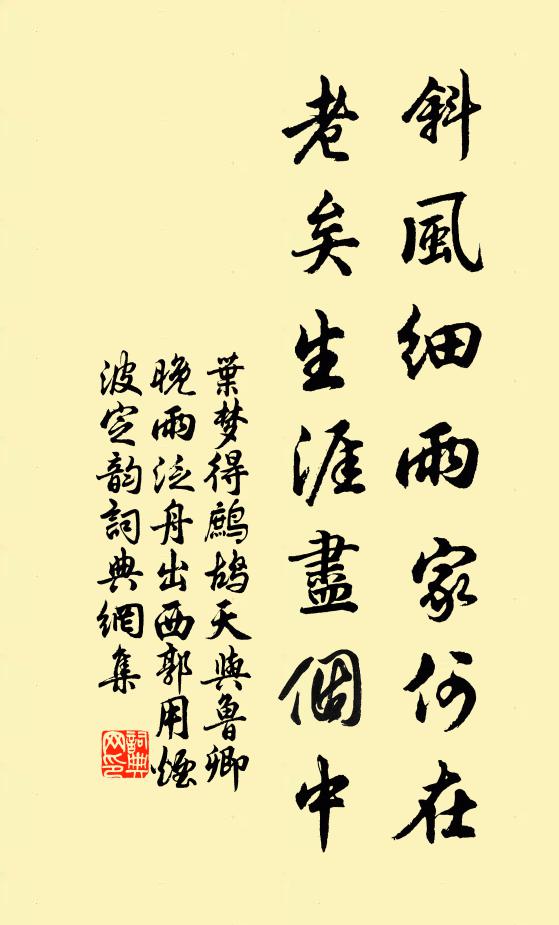 斜風細雨家何在
老矣生涯盡個中
葉梦得鷓鴣天與魯卿
晚雨泛舟出西郭用煙
波定韵詞典網集
詞典網印